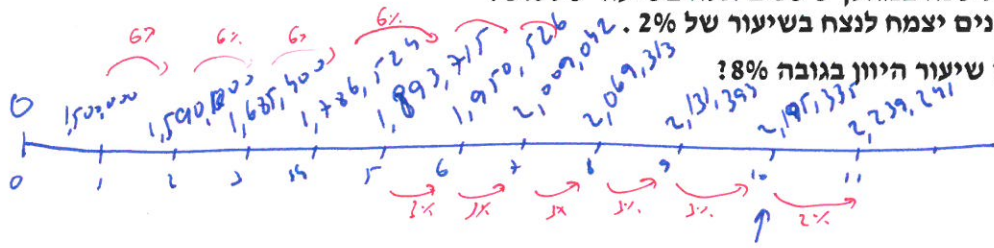 נים יצמח לנצח בשיעור של 2% .
שיעור היוון בגובה 8%?
6% 6% 6% 6%
0 1,500,000 1,590,000 1,685,400 1,786,524 1,893,715 1,950,526 2,009,042 2,069,313 2,131,393 2,195,335 2,239,241
0 1 2 3 4 5 6 7 8 9 10 11
3% 3% 3% 3% 3% 2%